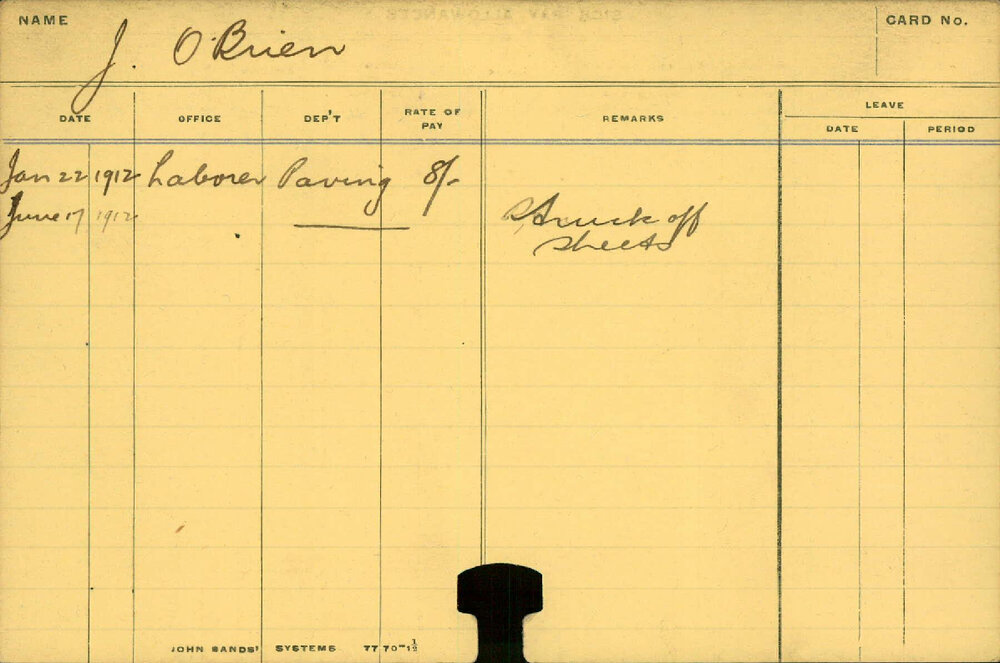 NAME J. O'Brien CARD No.
DATE OFFICE DEP'T RATE OF PAY REMARKS LEAVE
DATE PERIOD
Jan 22 1912 Laborer Paving 8/-
June 17 1912 Struck off
sheets
JOHN SANDS' SYSTEMS 7770-1/12